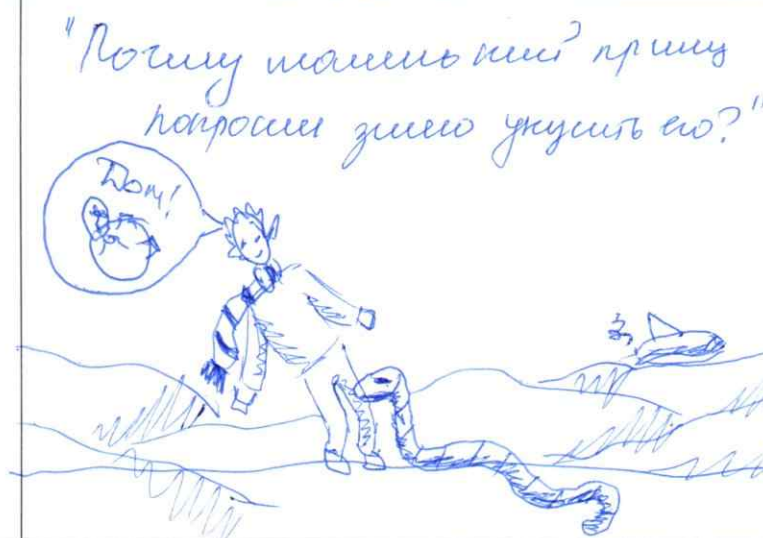 "Почему маленький принц
попросил змею укусить его?"
Дом!